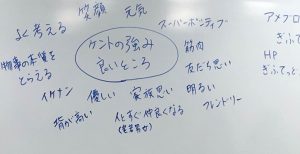 よく考える
笑顔
元気
スーパーポジティブ
アメフロ
物事の本質を
とらえる
ケントの強み
良いところ
筋肉
友だち思い
ぎふて
HP
ぎふてっど
イケメン
優しい
家族思い
明るい
背が高い
人とすぐ仲良くなる
フレンドリー